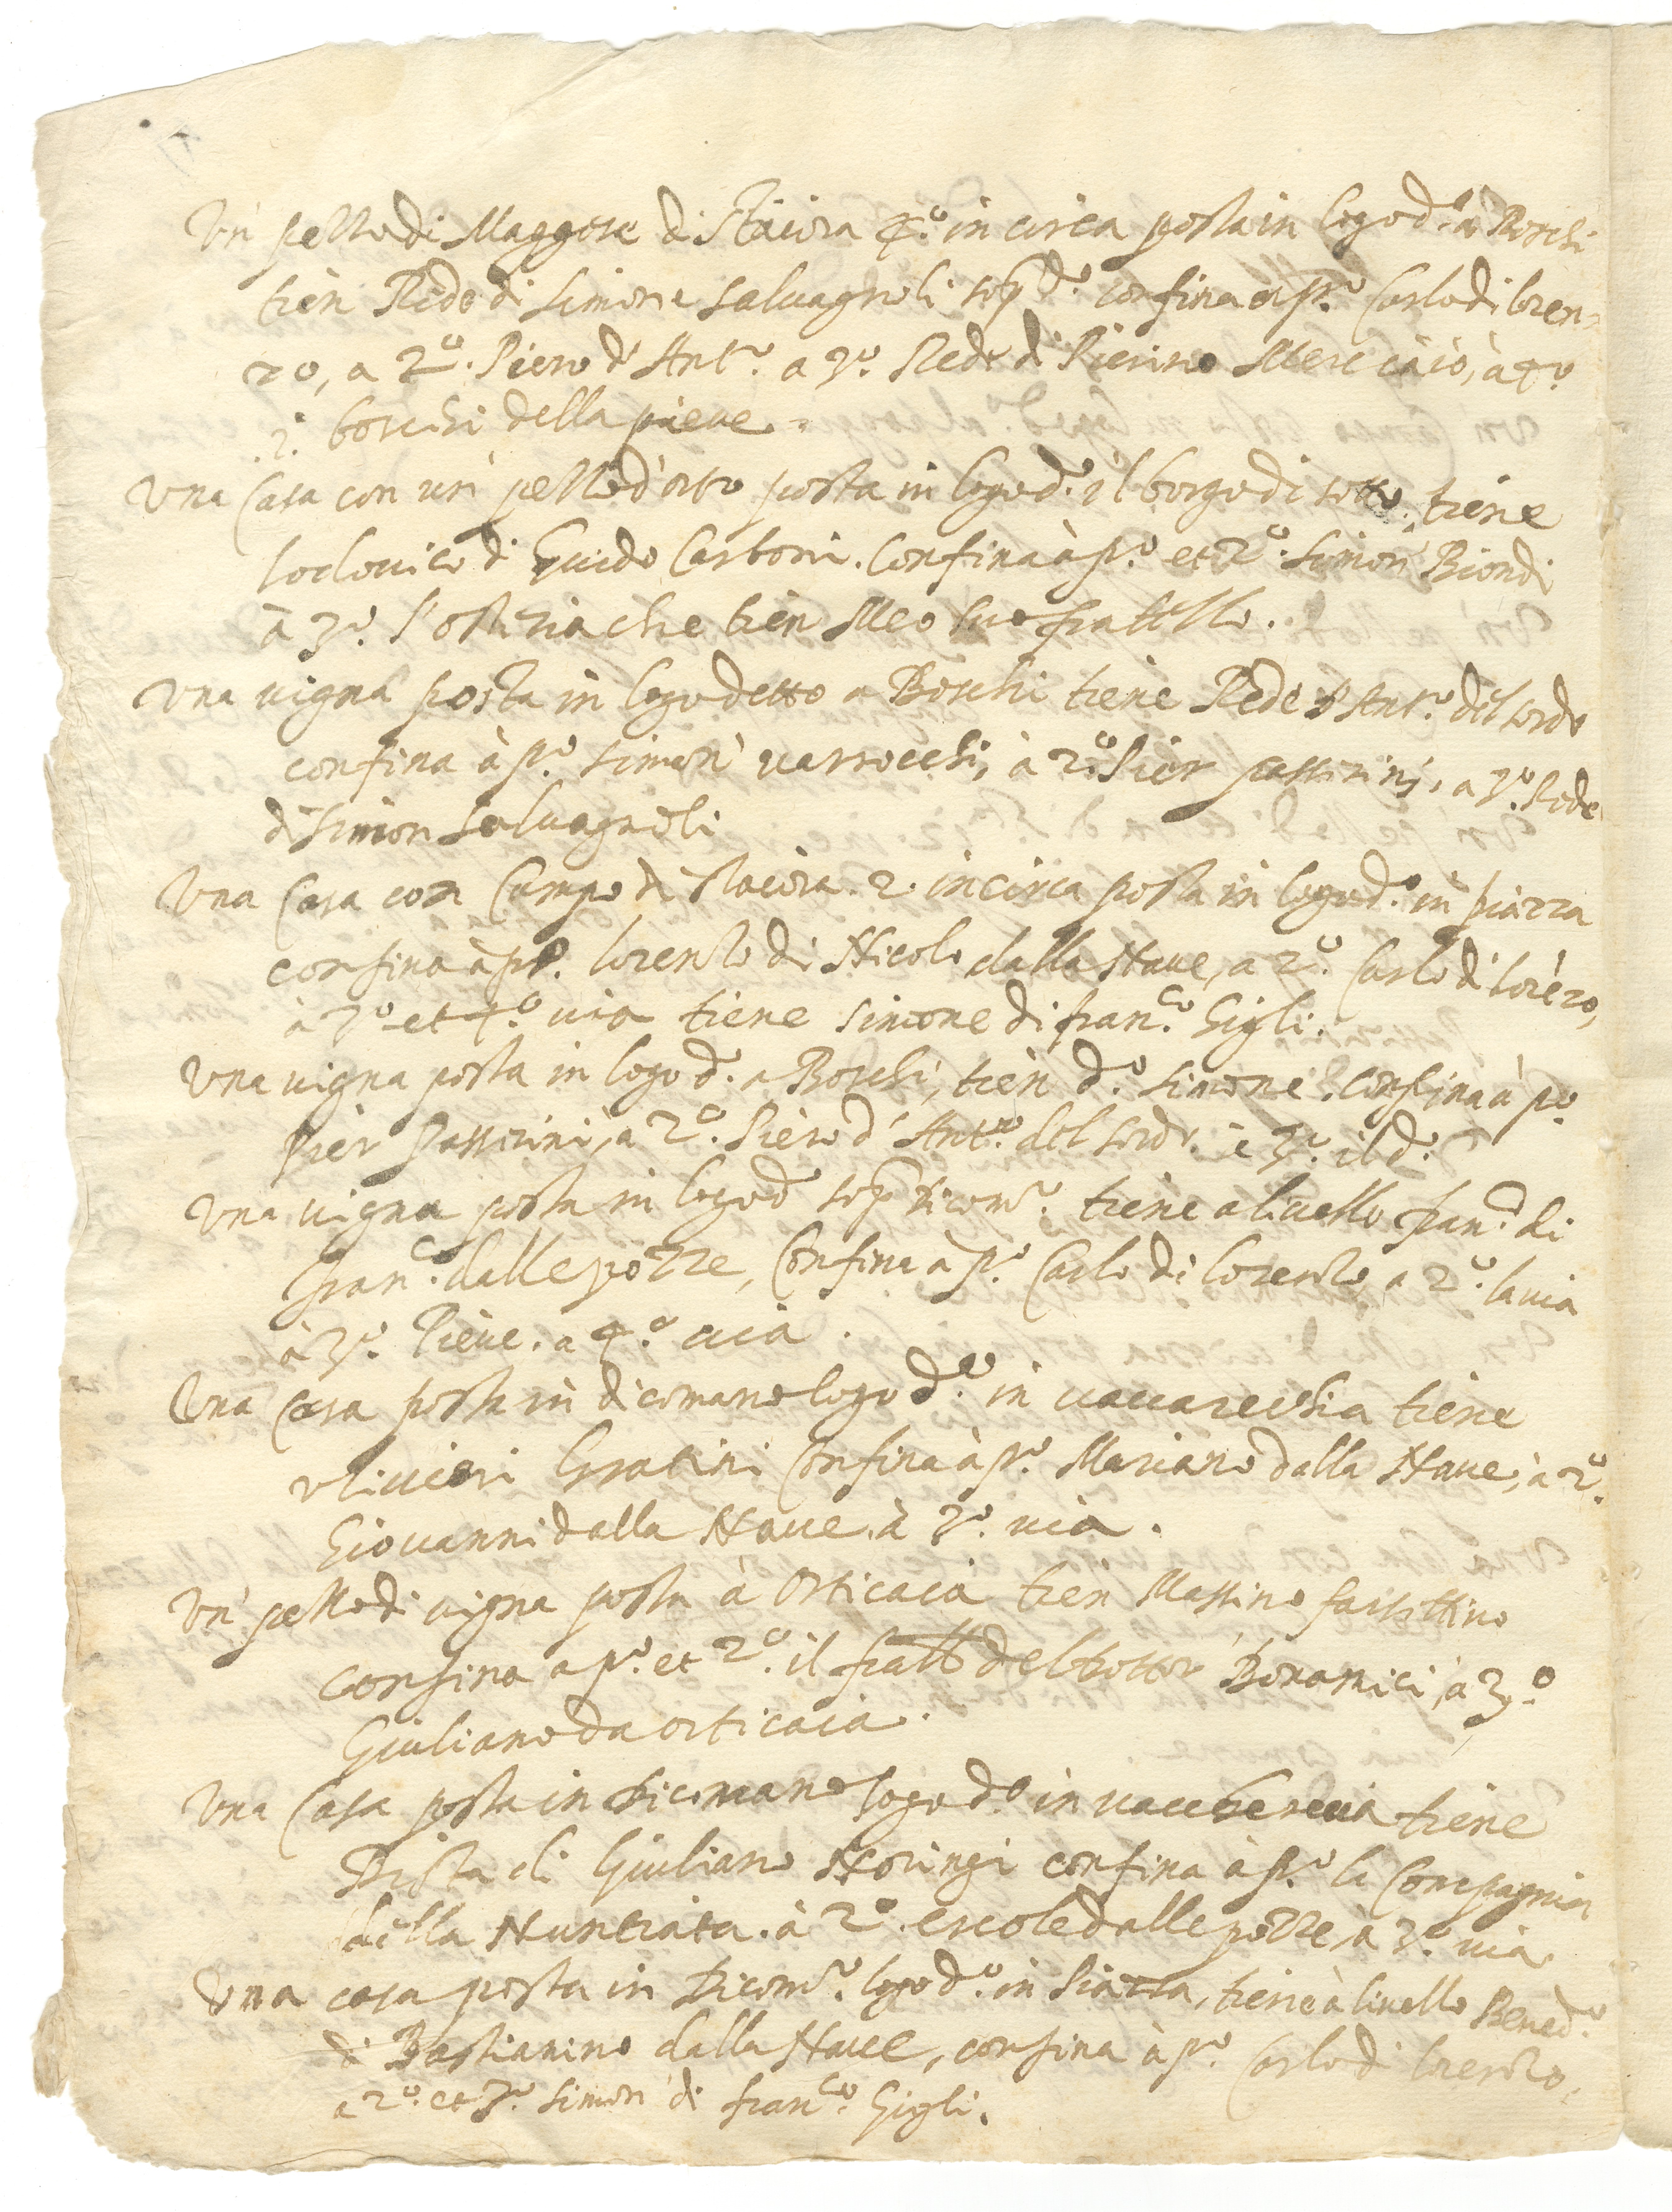 Un' pezzo di Maggese di staiora 4.º in circa posta in logo d.º a Boschi
tien Rede di Simone Saluagnoli sop.ª d.º confina a p.º Carlo di loren=
zo, a 2.º Piero d'Ant.º a 3.º Rede di Pierino Merciaio, à 4.º
i boschi della pieue.
Una Casa con un' pezzo d'orto posta in logo d.º il borgo di sotto, tiene
lodouico di Guido Carboni. Confina à p.º et 2.º Simon' Biondi
à 3.º l'osteria che tien Meo suo fratello.
Una uigna posta in logo detto a Boschi tiene Rede d'Ant.º del sordo
confina à p.º Simon' uerrocchi, à 2.º Pier passerini, a 3.º Rede
di Simon Saluagnoli
Una Casa con Campo di staiora 2. in circa posta in logo d.º in piazza
confina à p.º lorenzo di Nicolo dalla Naue, a 2.º Carlo di lorézo,
à 3.º et 4.º uia tiene Simone di fran.co Gigli.
Una uigna posta in logo d.º a Boschi, tien d.º Simone. Confina à p.º
Pier Passerini, a 2.º Piero d'Ant.º del sordo. è 3.º il d.º
Una uigna posta in logo d.º sop.ª Dicom.º tiene a liuello fran.º di
fran.co dalle pozze, Confina a p.º Carlo di Lorenzo, a 2.º la uia
à 3.º Pieue. a 4.º uia.
Una Casa posta in dicomano logo d.º in uaccarechia tiene
uliuieri Gratini Confina à p.º Mariano dalla Naue, à 2.º
Giouanni dalla Naue. à 3.º uia.
Un' pezzo di uigna posta à Orticaia tien Massino
confina a p.º et 2.º il fratello del dottor Bonamici, à 3.º
Giuliano da orticaia.
Una Casa posta in Dicomano logo d.º in uacchereccia tiene
di Giuliano confina à p.º la Compagnia
della Nuntiata. à 2.º ercole dalle pozze, à 3.º uia
Una casa posta in Dicom.º logo d.º in Piazza, tiene à liuello Bened.º
di Bastianino dalla Naue, confina à p.º Carlo di lorenzo,
a 2.º et 3.º Simon' di fran.co Gigli.